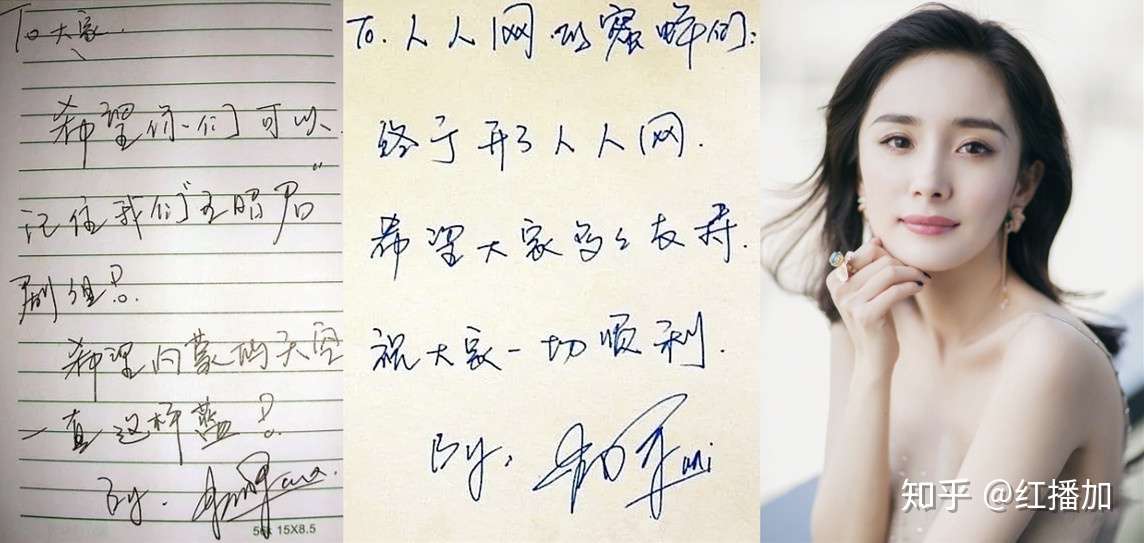 To 大家.
希望你们可以
记住我们“王昭君”
剧组!
希望内蒙的天空
一直这样蓝!
By.
56k 15X8.5
To.人人网的蜜蜂们:
终于开了人人网.
希望大家多多支持.
祝大家一切顺利.
By.
mi
知乎 @红播加